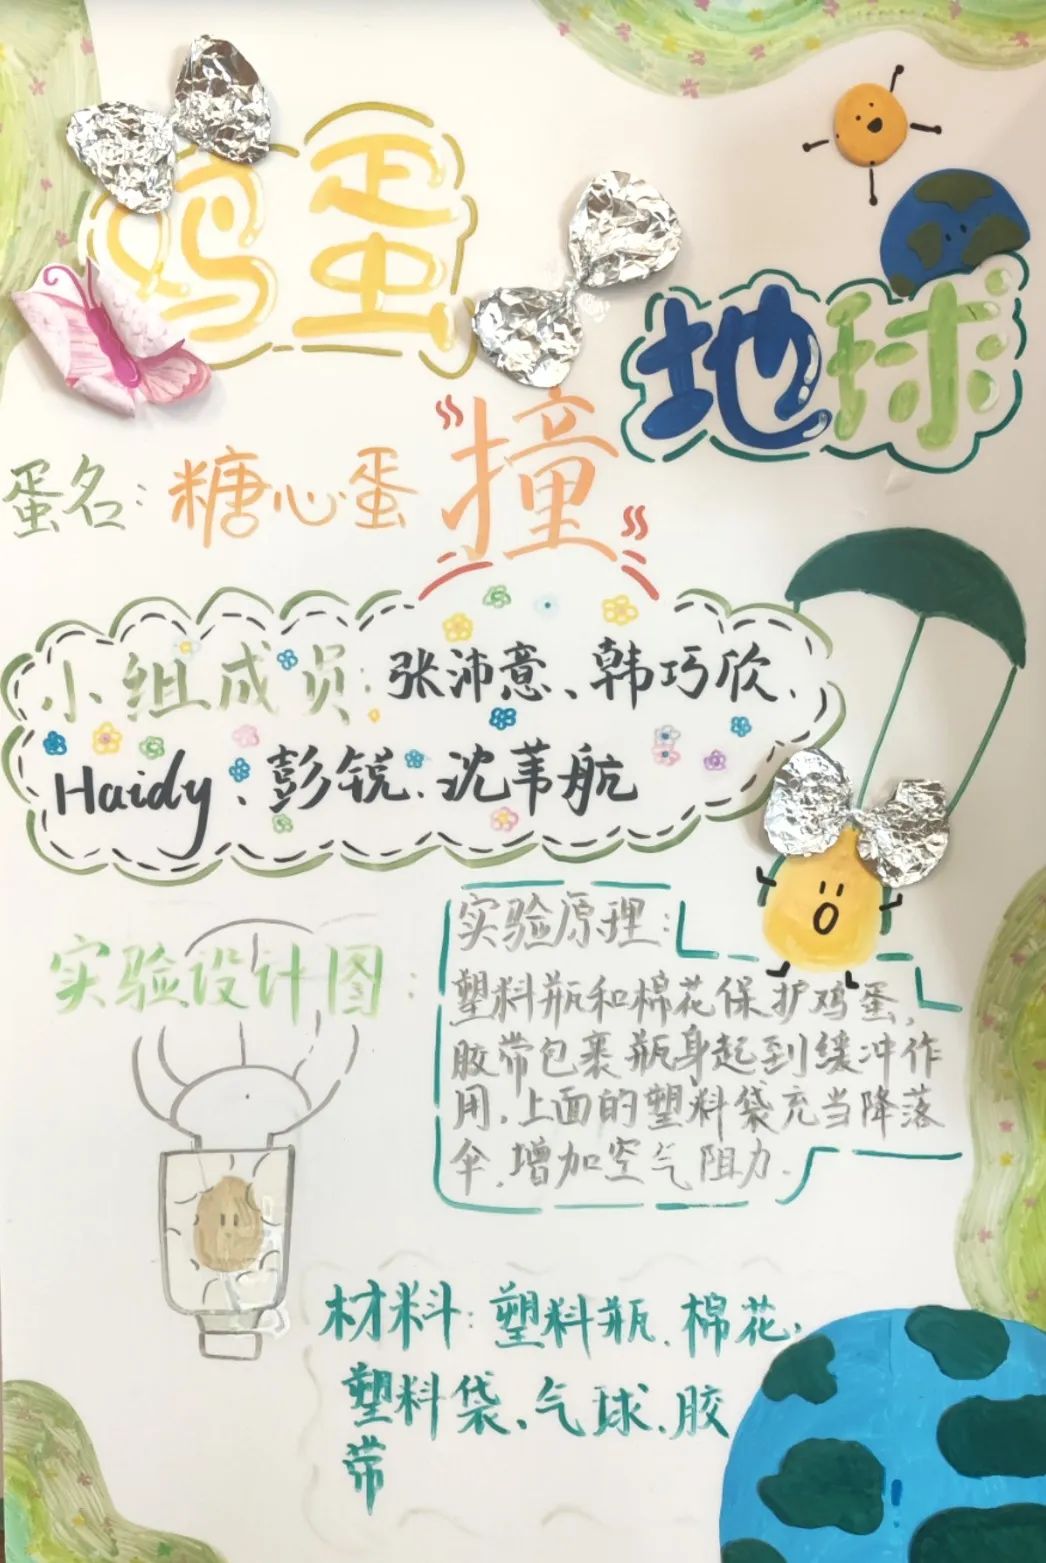 鸡蛋
撞
地球
蛋名:糖心蛋
小组成员:张沛意、韩巧欣、
Haidy、彭锐、沈苇航
实验设计图:
实验原理:
塑料瓶和棉花保护鸡蛋,
胶带包裹瓶身起到缓冲作
用,上面的塑料袋充当降落
伞,增加空气阻力.
材料:塑料瓶、棉花,
塑料袋、气球、胶
带